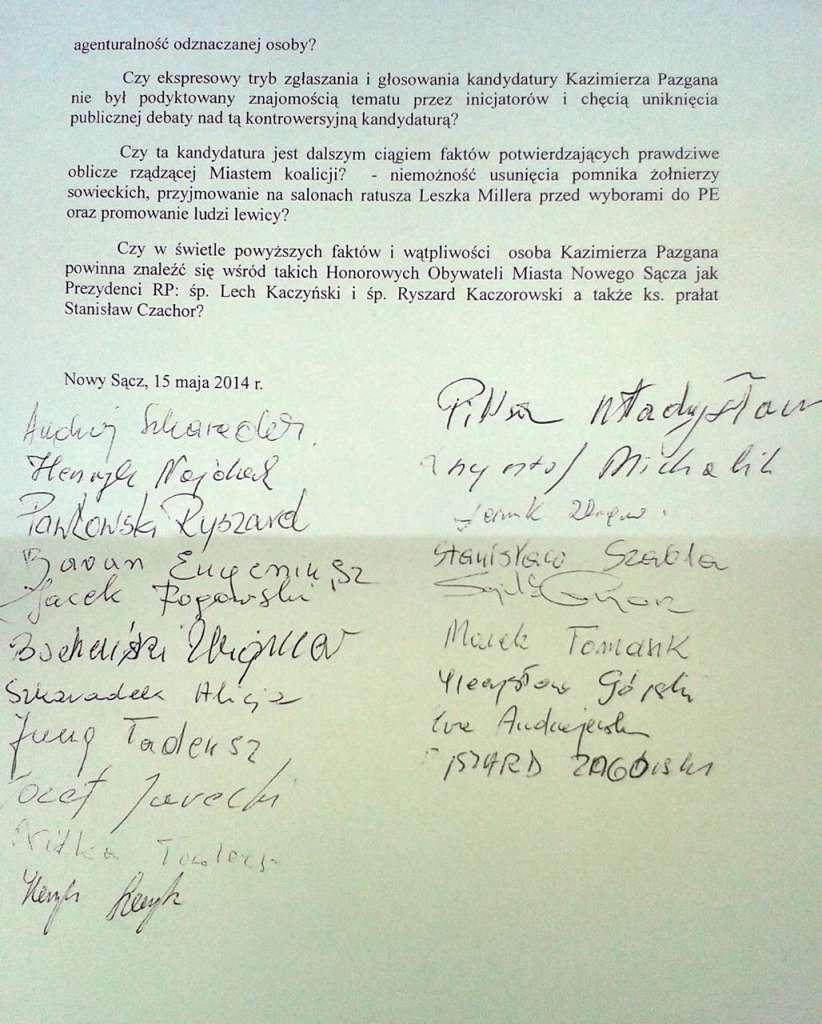 agenturalność odznaczanej osoby?
Czy ekspresowy tryb zgłaszania i głosowania kandydatury Kazimierza Pazgana
nie był podyktowany znajomością tematu przez inicjatorów i chęcią uniknięcia
publicznej debaty nad tą kontrowersyjną kandydaturą?
Czy ta kandydatura jest dalszym ciągiem faktów potwierdzających prawdziwe
oblicze rządzącej Miastem koalicji? - niemożność usunięcia pomnika żołnierzy
sowieckich, przyjmowanie na salonach ratusza Leszka Millera przed wyborami do PE
oraz promowanie ludzi lewicy?
Czy w świetle powyższych faktów i wątpliwości osoba Kazimierza Pazgana
powinna znaleźć się wśród takich Honorowych Obywateli Miasta Nowego Sącza jak
Prezydenci RP: śp. Lech Kaczyński i śp. Ryszard Kaczorowski a także ks. prałat
Stanisław Czachor?
Nowy Sącz, 15 maja 2014 r.
Andrzej Szkaradek
Henryk Najduch
Pawłowski Ryszard
Baran Eugeniusz
Jacek Rogowski
Bocheński Zbigniew
Szkaradek Alicja
Jung Tadeusz
Józef Jarecki
Nitka Tadeusz
Henryk
Władysław
Krzysztof Michalik
Stanisław Szabla
Marek Tomasik
Mieczysław Górski
Ewa Andrzejewska
RYSZARD ZAGÓRSKI